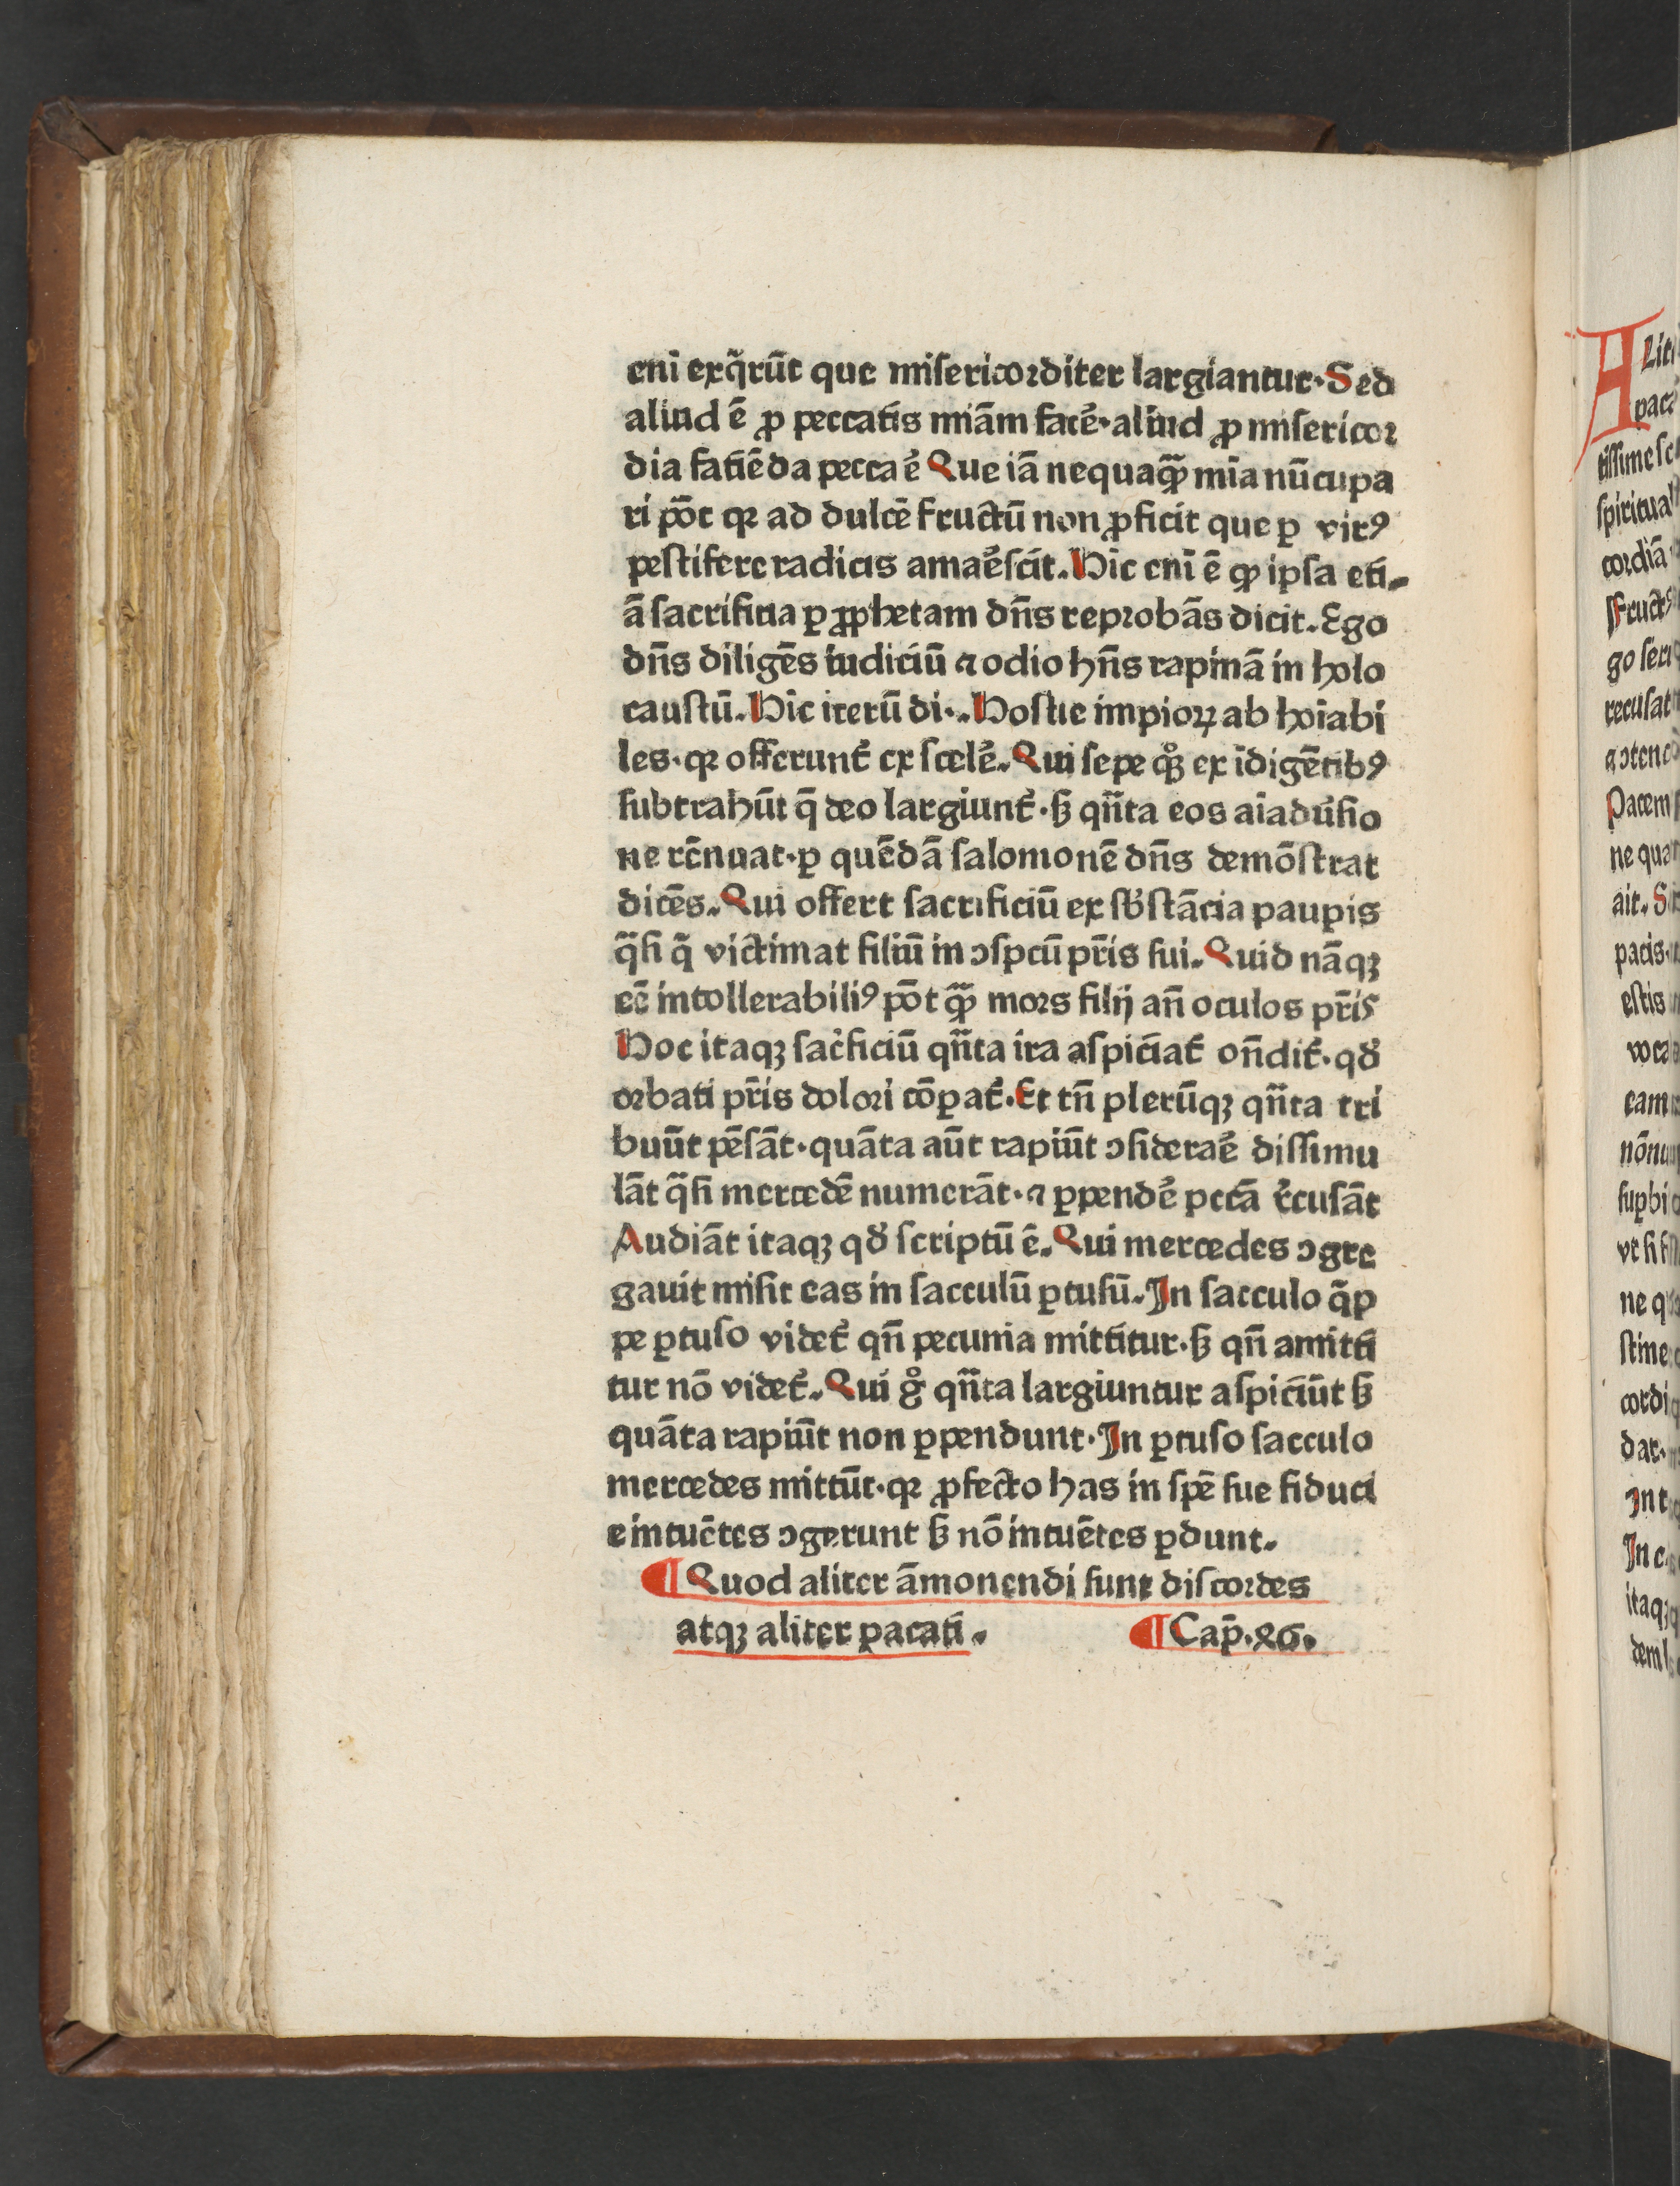 eni exq̄rūt que misericorditer largiantur·Sed
aliud ē ꝓ peccatis miām facē·aliud ꝓ misericor
dia fatiēda pecca ē Que iā nequaꝙ̄ mīa nūcupa
ri pōt qꝛ ad dulcē fructū non ꝓficit que ꝑ virꝰ
pestifere radicis amaēscit.Hic eni ē ꝙ ipsa eti⸗
ā sacrificia ꝑ ꝓphetam dn̄s reprobās dicit.Ego
dn̄s diligēs iudiciū ⁊ odio hn̄s rapinā in holo
caustū.Hic iterū di·.Hostie impioꝝ ab hoīabi
les·qꝛ offerunt᷑ ex scelē.Qui sepe qͦꝫ ex īdigētibꝰ
subtrahūt q̄ deo largiunt᷑·sꝫ qn̄ta eos aīaduͥsio
ne rēnuat·ꝑ quēdā salomonē dn̄s demōstrat
dicēs.Qui offert sacrificiū ex sb̓stācia pauꝑis
q̄si q̄ victimat filiū in ↄspcū pr̄is sui.Quid nāqꝫ
eē intollerabiliꝰ pōt ꝙ̄ mors filij an̄ oculos pr̄is
Hoc itaqꝫ sac̓ficiū qn̄ta ira aspiciāt᷑ on̄dit᷑·qď
orbati pr̄is dolori cōꝑat᷑.Et tn̄ plerūqꝫ qn̄ta tri
buūt pēsāt·quāta aūt rapiūt ↄsideraē dissimu
lāt q̄si mercedē numerāt·⁊ ꝑpendē pctā r̓cusāt
Audiāt itaqꝫ qď scriptū ē.Qui mercedes ↄgre
gauit misit eas in sacculū ꝑtusū.In sacculo q̄p
pe ꝑtuso videt᷑ qn̄ pecunia mittitur·sꝫ qn̄ amitti
tur nō videt᷑.Qui gͦ qn̄ta largiuntur aspiciūt sꝫ
quāta rapiūt non ꝑpendunt·In ꝑtuso sacculo
mercedes mittūt·qꝛ ꝓfecto has in spē sue fiduci
e intuētes ↄgerunt sꝫ nō intuētes ꝑdunt.
¶Quod aliter āmonendi sunt discordes
atqꝫ aliter pacati. ¶Cap̄.26.